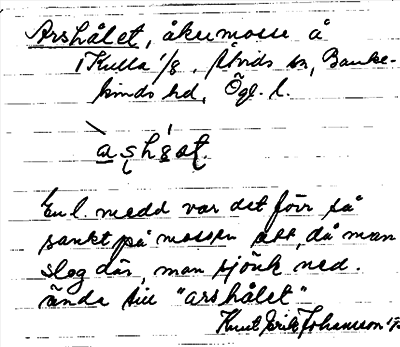 Arshålet, åkermosse å
i Kulla 1/8, Åtvids sn, Banke-
kinds hd, Ögl. l.
Enl. medd var det förr så
sankt på mossen att, då man
slog där, man sjönk ned.
ända till "arshålet"
Knut Erik Johansson